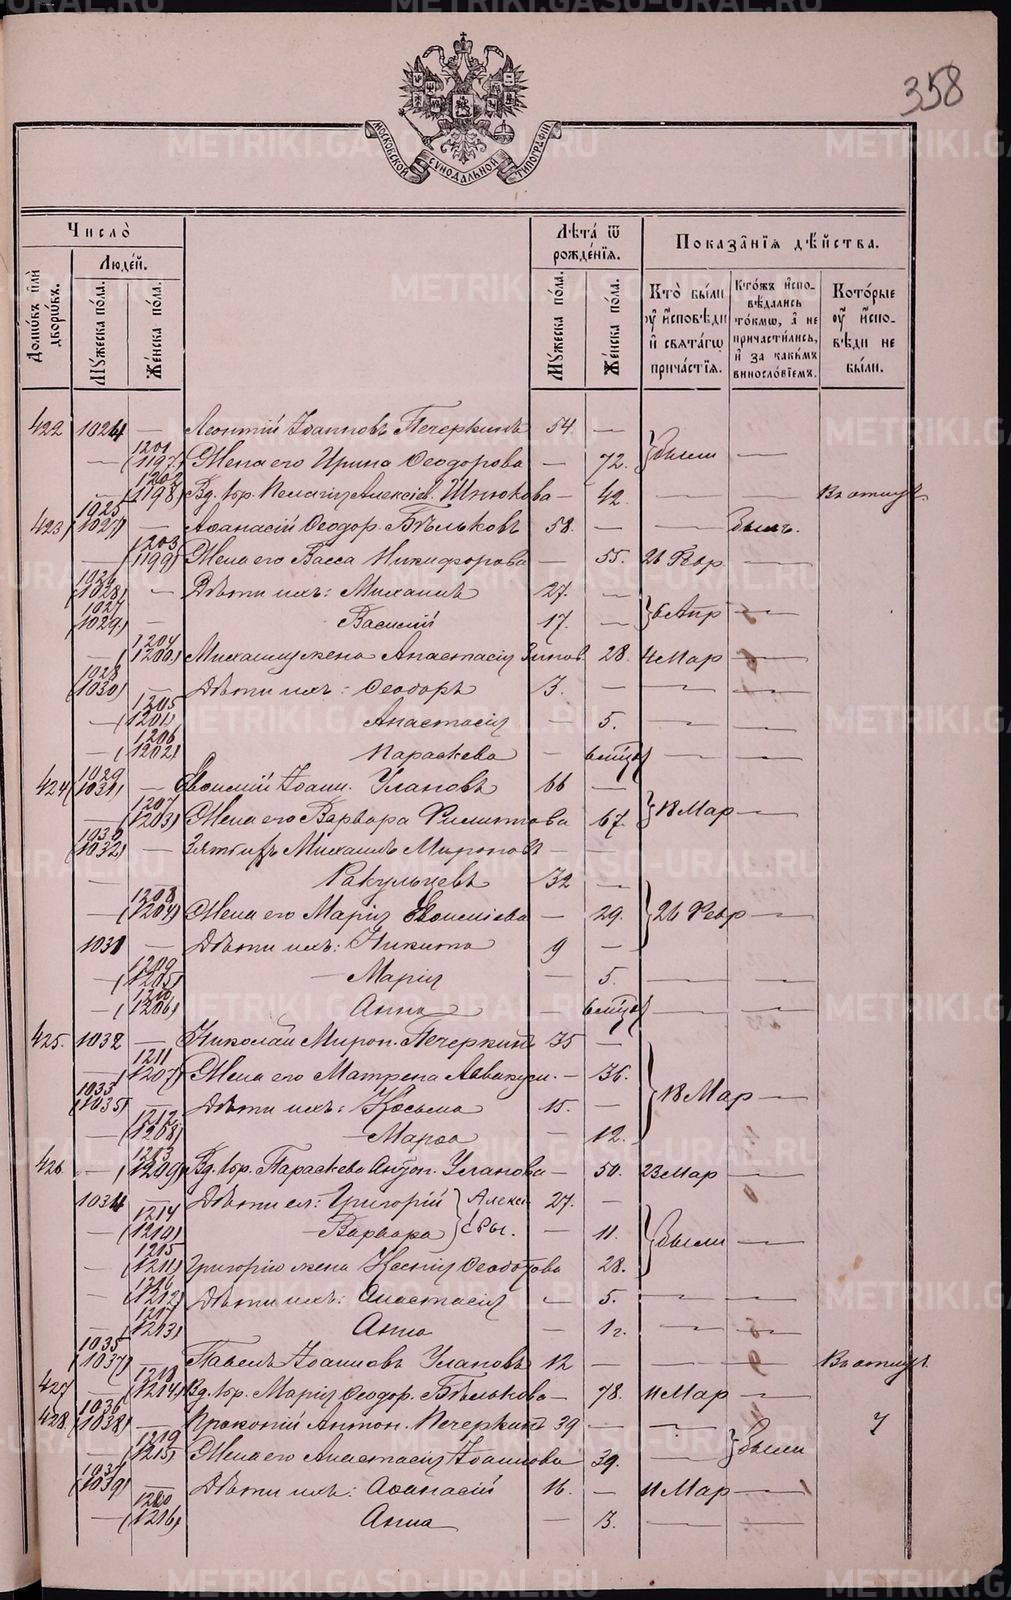 358
МОСКОВСКОЙ СѴНОДАЛЬНОЙ ТИПОГРАФІИ
Число̀ Лѣта̀ ѿ рожде́нїѧ. Показа̑нїѧ дѣ́йства.
Людѐй.
Домѡ́въ и҆лѝ дворѡ́въ. Мꙋ́жеска по́ла. Же́нска по́ла. Мꙋ́жеска по́ла. Же́нска по́ла. Кто̀ бы́ли ᲂу҆ и҆сповѣ́ди и҆ свѧта́гѡ причáстїѧ. Кто́жъ и҆спо- вѣ́дались то́кмѡ, а҆ не причасти́лись, и҆ за каки́мъ винослóвїемъ. Кото́рые ᲂу҆ и҆спо- вѣ́ди не бы́ли.
422 1024 — Леонтій Іоанновъ Печеркинъ 54 —
— 1201 (1197) Жена его Ирина Ѳеодорова — 72. } были —
— 1202 (1198) Вд. Алексіев. Шнюкова — 42 — — В отлуч.
423 1025 (1027) — Аѳанасій Ѳеодор. Бѣльковъ 58. — — былъ.
— 1203 (1199) Жена его Васса Никифорова — 55. 26 Февр —
1026 (1028) — Дѣти ихъ: Михаилъ 27. —
1027 (1029) Василій 17. — } 6 Апр —
— 1204 (1200) Михаилу жена Анастасія Зинов. 28. 4 Мар —
1028 (1030) — Дѣти ихъ: Ѳеодоръ 3. — — —
— 1205 (1201) Анастасія — 5. — —
— 1206 (1202) Параскева — — —
424 1029 (1031) — Іоанн. Улановъ 66 —
— 1207 (1203) Жена его Варвара Филиппова 67. } 18 Мар —
1030 (1032) — Михаилъ Мироновъ — —
— Ракульцевъ 32 —
— 1208 (1204) Жена его Марія — 29. } 26 Февр —
1031 — Дѣти ихъ: Никита 9 —
— 1209 (1205) — Марія — 5. — —
— 1210 (1206) Анна — — —
425. 1032 — Николай Мирон. Печеркинъ 35 —
— 1211 (1207) Жена его Матрена Аввакум. — 36.
1033 (1035) — Дѣти ихъ: Косьма 15. — } 18 Мар —
— 1212 (1208) — Марѳа — 12.
426 — 1213 (1209) Вд. Параскева Антон. Уланова — 50. 23 Мар —
1034 — Дѣти ея: Григорій } Алекс- 27. —
— 1214 (1210) — Варвара } — 11. } были —
— 1215 (1211) Григорію жена Ксенія Ѳеодотова 28.
— 1216 (1212) Дѣти ихъ: Анастасія — 5. — —
— 1217 (1213) Анна — 1 г. — —
1035 (1037) Павелъ Іоанновъ Улановъ 12 — — — В отлуч.
427 — 1218 (1214) Вд. Марія Ѳеодор. Бѣлькова — 78. 11 Мар —
428 1036 (1038) — Прокопій Антон. Печеркинъ 39 — —
— 1219 (1215) Жена его Анастасія Іоаннова 39. — } были
1037 (1039) — Дѣти ихъ: Аѳанасій 16. — 11 Мар —
— 1220 (1216) Анна — 3. — —
METRIKI.GASO-URAL.RU